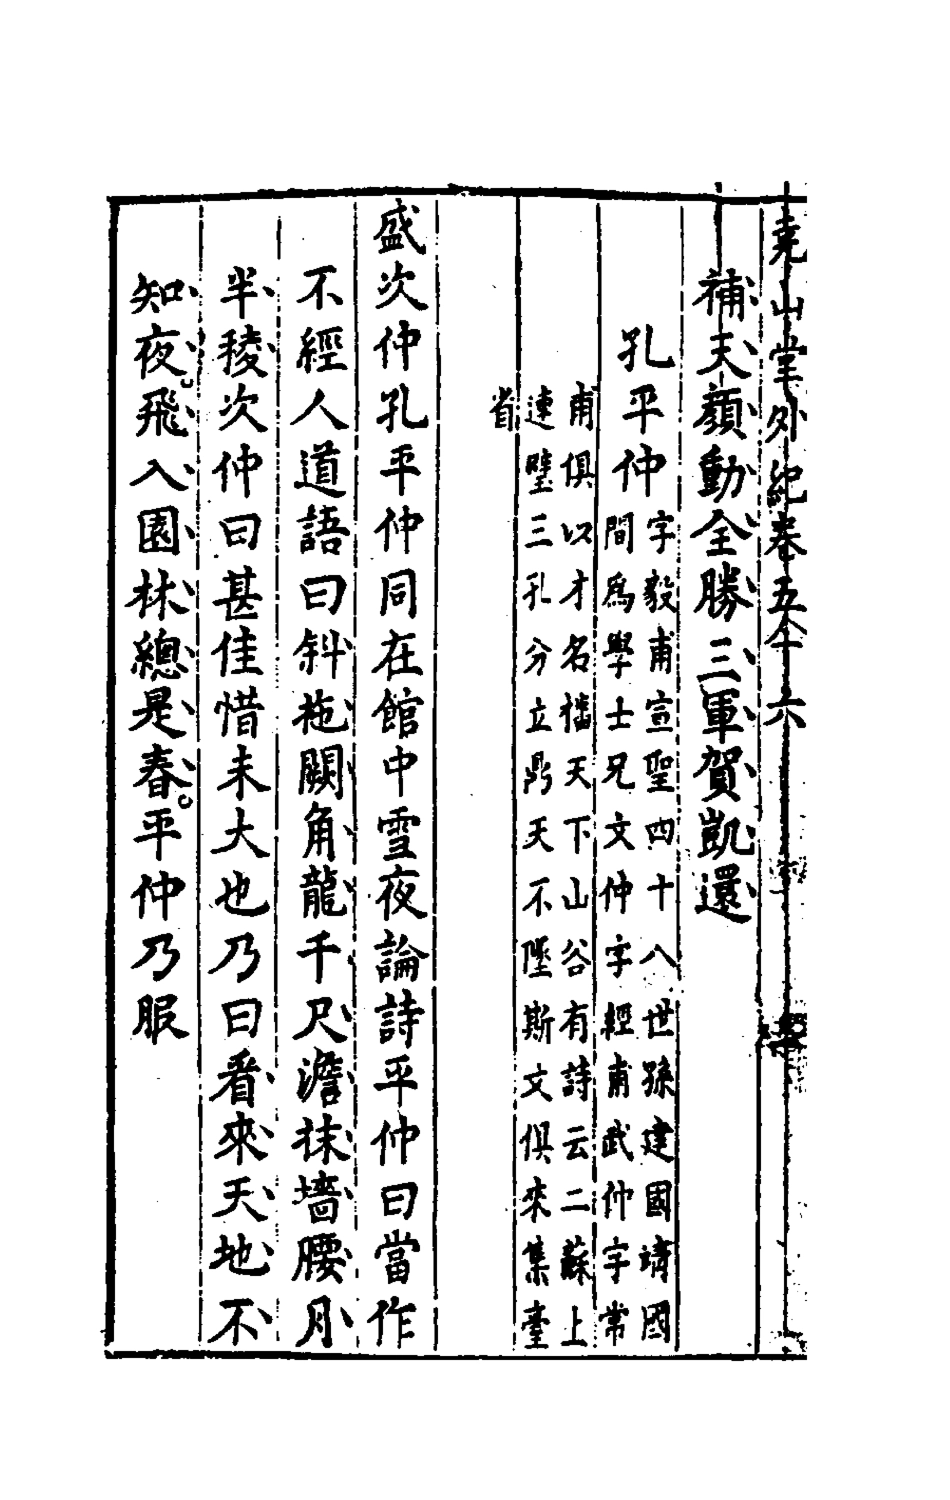 堯山堂外紀卷五十六
補天顏動全勝三軍賀凱還
孔平仲
字毅甫宣聖四十八世孫建國靖國
間爲學士兄文仲字經甫武仲字常
甫俱以才名播天下山谷有詩云二蘇上
連璧三孔分立鼎天不墜斯文俱來集臺
省
盛次仲孔平仲同在館中雪夜論詩平仲曰當作
不經人道語曰斜拖闕角龍千尺澹抹墻腰月
半稜次仲曰甚佳惜未大也乃曰看來天地不
知夜飛入園林總是春平仲乃服